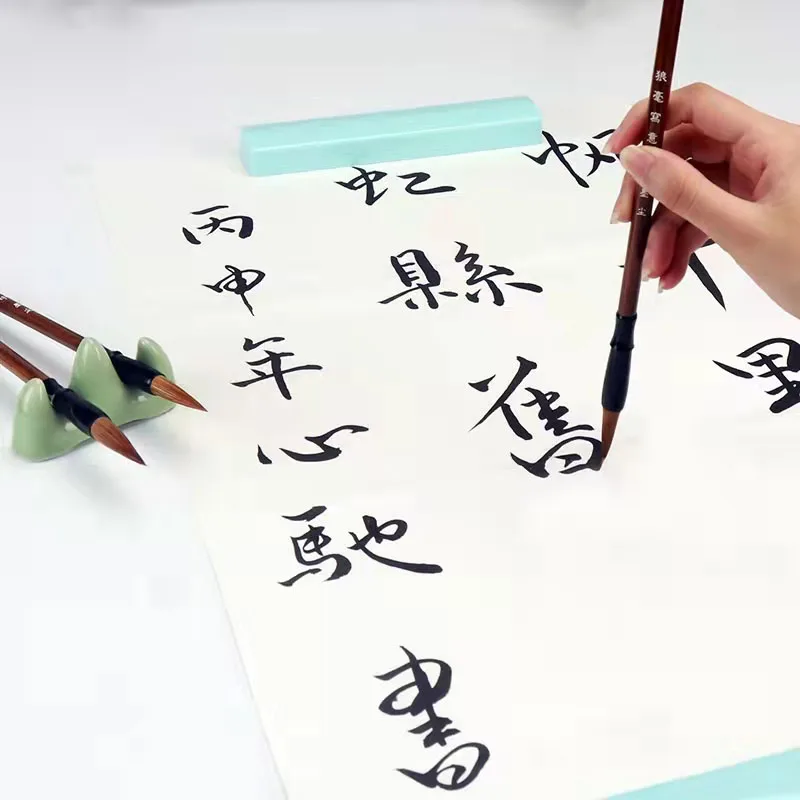 帆里
虹縣舊
丙申年心馳書
狼毫寫意